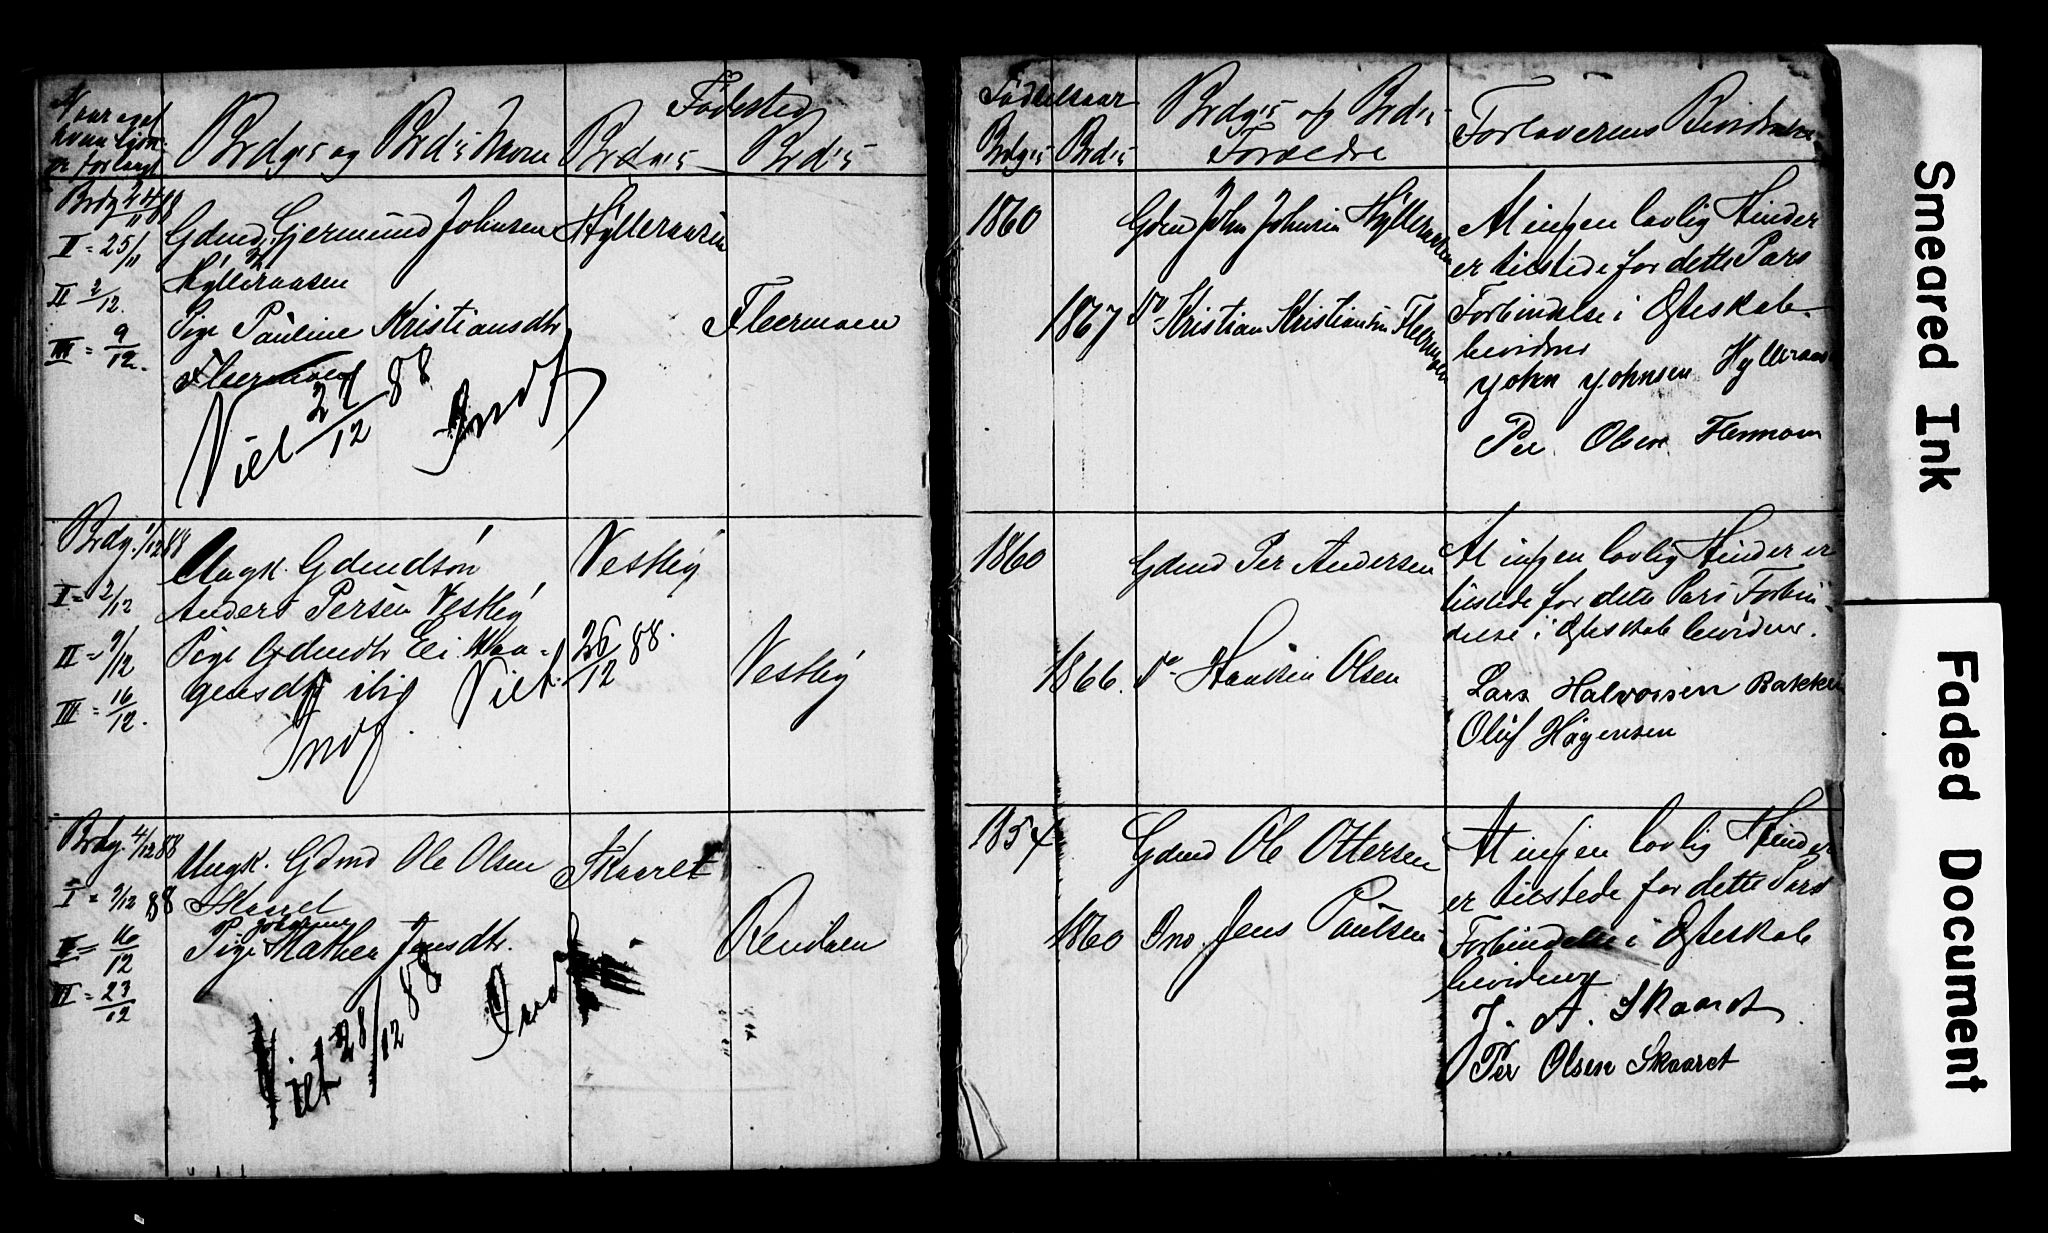 Fødested
Brdgs og Brd's Navn Brdgs Brd's
Brdg 24/11 88
I = 25/11
II 2/12.
III = 9/12.
Gdmd. Gjermund Johnsen
Hylleraasen
Pige Pauline Kristiansdtr
Fleermoen
Viet 27/12 88 Indf
Hylleraasen
Fleermoen
Brdg. 1/12 88
I = 2/12
II = 9/12
III = 16/12.
Ungk. Gdmdsøn
Anders Persen Vestby
Pige Gdmdtr
ibid Viet 26/12 88.
Indf.
Vestby
Vestby
Brdg. 4/12 88
I = 9/12 88
II = 16/12
III = 23/12
Ungk. Gdmd Ole Olsen
Skaaret
Pige Kathea Jensdtr.
Viet 28/12 88 Indf
Skaaret
Rendalen
Fødselsaar
Brdgs Brd's
Brdgs og Brd's
Forældre
Forloverens Bevidnelse
1860 Gdmd John Johnsen Hylleraasen
1867 Do Kristian Kristiansen Fleermoen
At ingen lovlig Hinder
er tilstede for dette Pars
Forbindelse i Ægteskab
bevidnes
John Johnsen Hylleraas
Per Olsen Flermoen
1860 Gdmd Per Andersen
1866. Do Haaken Olsen
At ingen lovlig Hinder er
tilstede for dette Pars Forbin-
delse i Ægteskab bevidnes.
Lars Halvorsen Bakken
Oluf Hagensen
1854 Gdmd Ole Ottersen
1860 Do. Jens Paulsen
At ingen lovlig Hinder
er tilstede for dette Pars
Forbindelse i Ægteskab
bevidnes
J. A. Skaaret
Per Olsen Skaaret
Smeared Ink
Faded Document